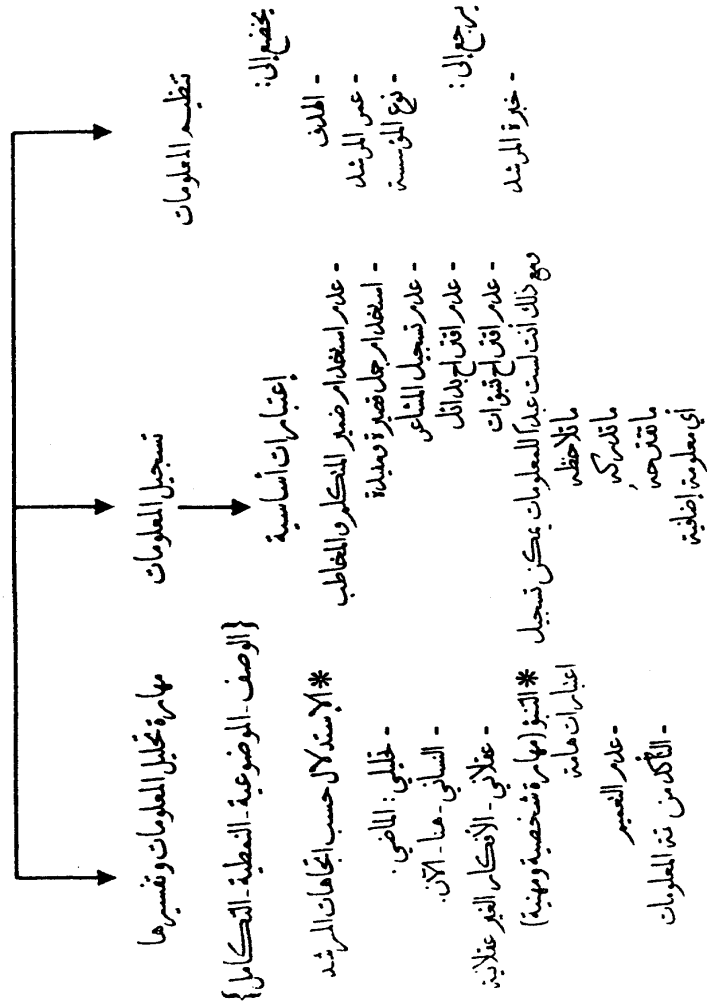 تنظيم المعلومات
يخضع إلى:
- الهدف
- عمر المرشد
- نوع المؤسسة
يرجع إلى:
- خبرة المرشد
تسجيل المعلومات
إعتبارات أساسية
- عدم استخدام ضمير المتكلم والمخاطب
- استخدام جمل قصيرة ومفيدة
- عدم تسجيل المشاعر
- عدم اقتراح بدائل
- عدم اقتراح تنبؤات
ومع ذلك أنت لست عبداً للمعلومات يمكن تسجيل
ما تلاحظه
ما تدركه
ما تقترحه
أي معلومة إضافية
مهارة تحليل المعلومات وتفسيرها
{الوصف - الموضوعية - النمطية - التكامل}
* الإستدلال حسب اتجاهات المرشد
- تحليلي: الماضي.
- انساني - هنا - الآن.
- عقلاني - الأفكار الغير عقلانية
* التنبؤ (مهارة شخصية ومهنية)
اعتبارات هامة
- عدم التعميم
- التأكد من المعلومات